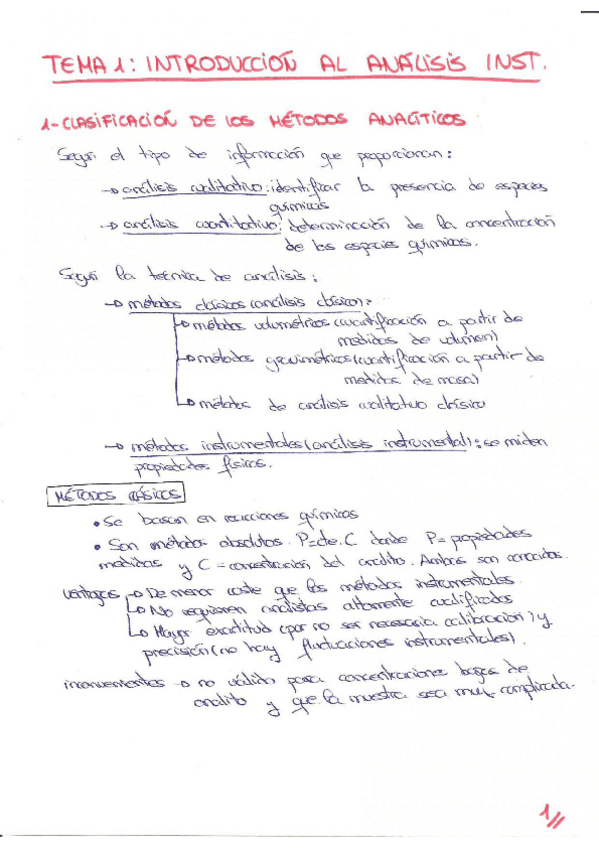 TEMA 1: INTRODUCCIÓN AL ANÁLISIS INST.
1-CLASIFICACIÓN DE LOS MÉTODOS ANALÍTICOS
Según el tipo de información que proporcionan:
→ análisis cualitativo: identificar la presencia de especies
químicas
→ análisis cuantitativo: determinación de la concentración
de las especies químicas.
Según la técnica de análisis:
→ métodos clásicos (análisis clásico):
→ métodos volumétricos (cuantificación a partir de
medidas de volumen)
→ métodos gravimétricos (cuantificación a partir de
medidas de masa)
→ métodos de análisis cualitativo clásico
→ métodos instrumentales (análisis instrumental): se miden
propiedades físicas.
MÉTODOS CLÁSICOS
• Se basan en reacciones químicas
• Son métodos absolutos. P=cte.C donde P= propiedades
medidas y C = concentración del analito. Ambas son conocidas.
ventajas → De menor coste que los métodos instrumentales.
→ No requieren analistas altamente cualificados
→ Mayor exactitud (por no ser necesaria calibración) y
precisión (no hay fluctuaciones instrumentales).
inconvenientes → no válido para concentraciones bajas de
analito y que la muestra sea muy complicada.
1//